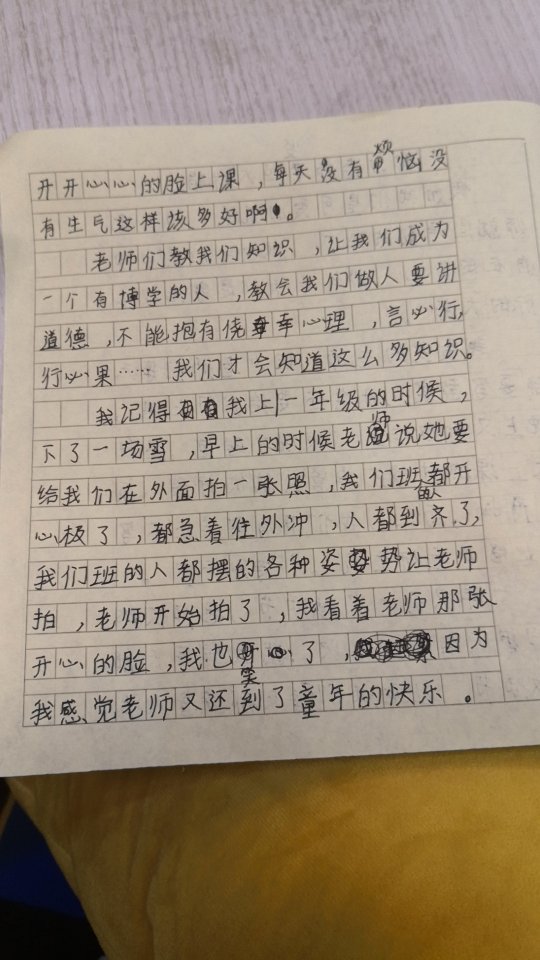 开开心心的脸上课，每天没有烦恼没
有生气这样该多好啊。
老师们教我们知识，让我们成为
一个有博学的人，教会我们做人要讲
道德，不能抱有侥幸心理，言必行，
行必果……我们才会知道这么多知识。
我记得我上一年级的时候，
下了一场雪，早上的时候老师说她要
给我们在外面拍一张照，我们班都开
心极了，都急着往外冲，人都到齐了，
我们班的人都摆的各种姿势让老师
拍，老师开始拍了，我看着老师那张
开心的脸，我也笑了，因为
我感觉老师又还到了童年的快乐。